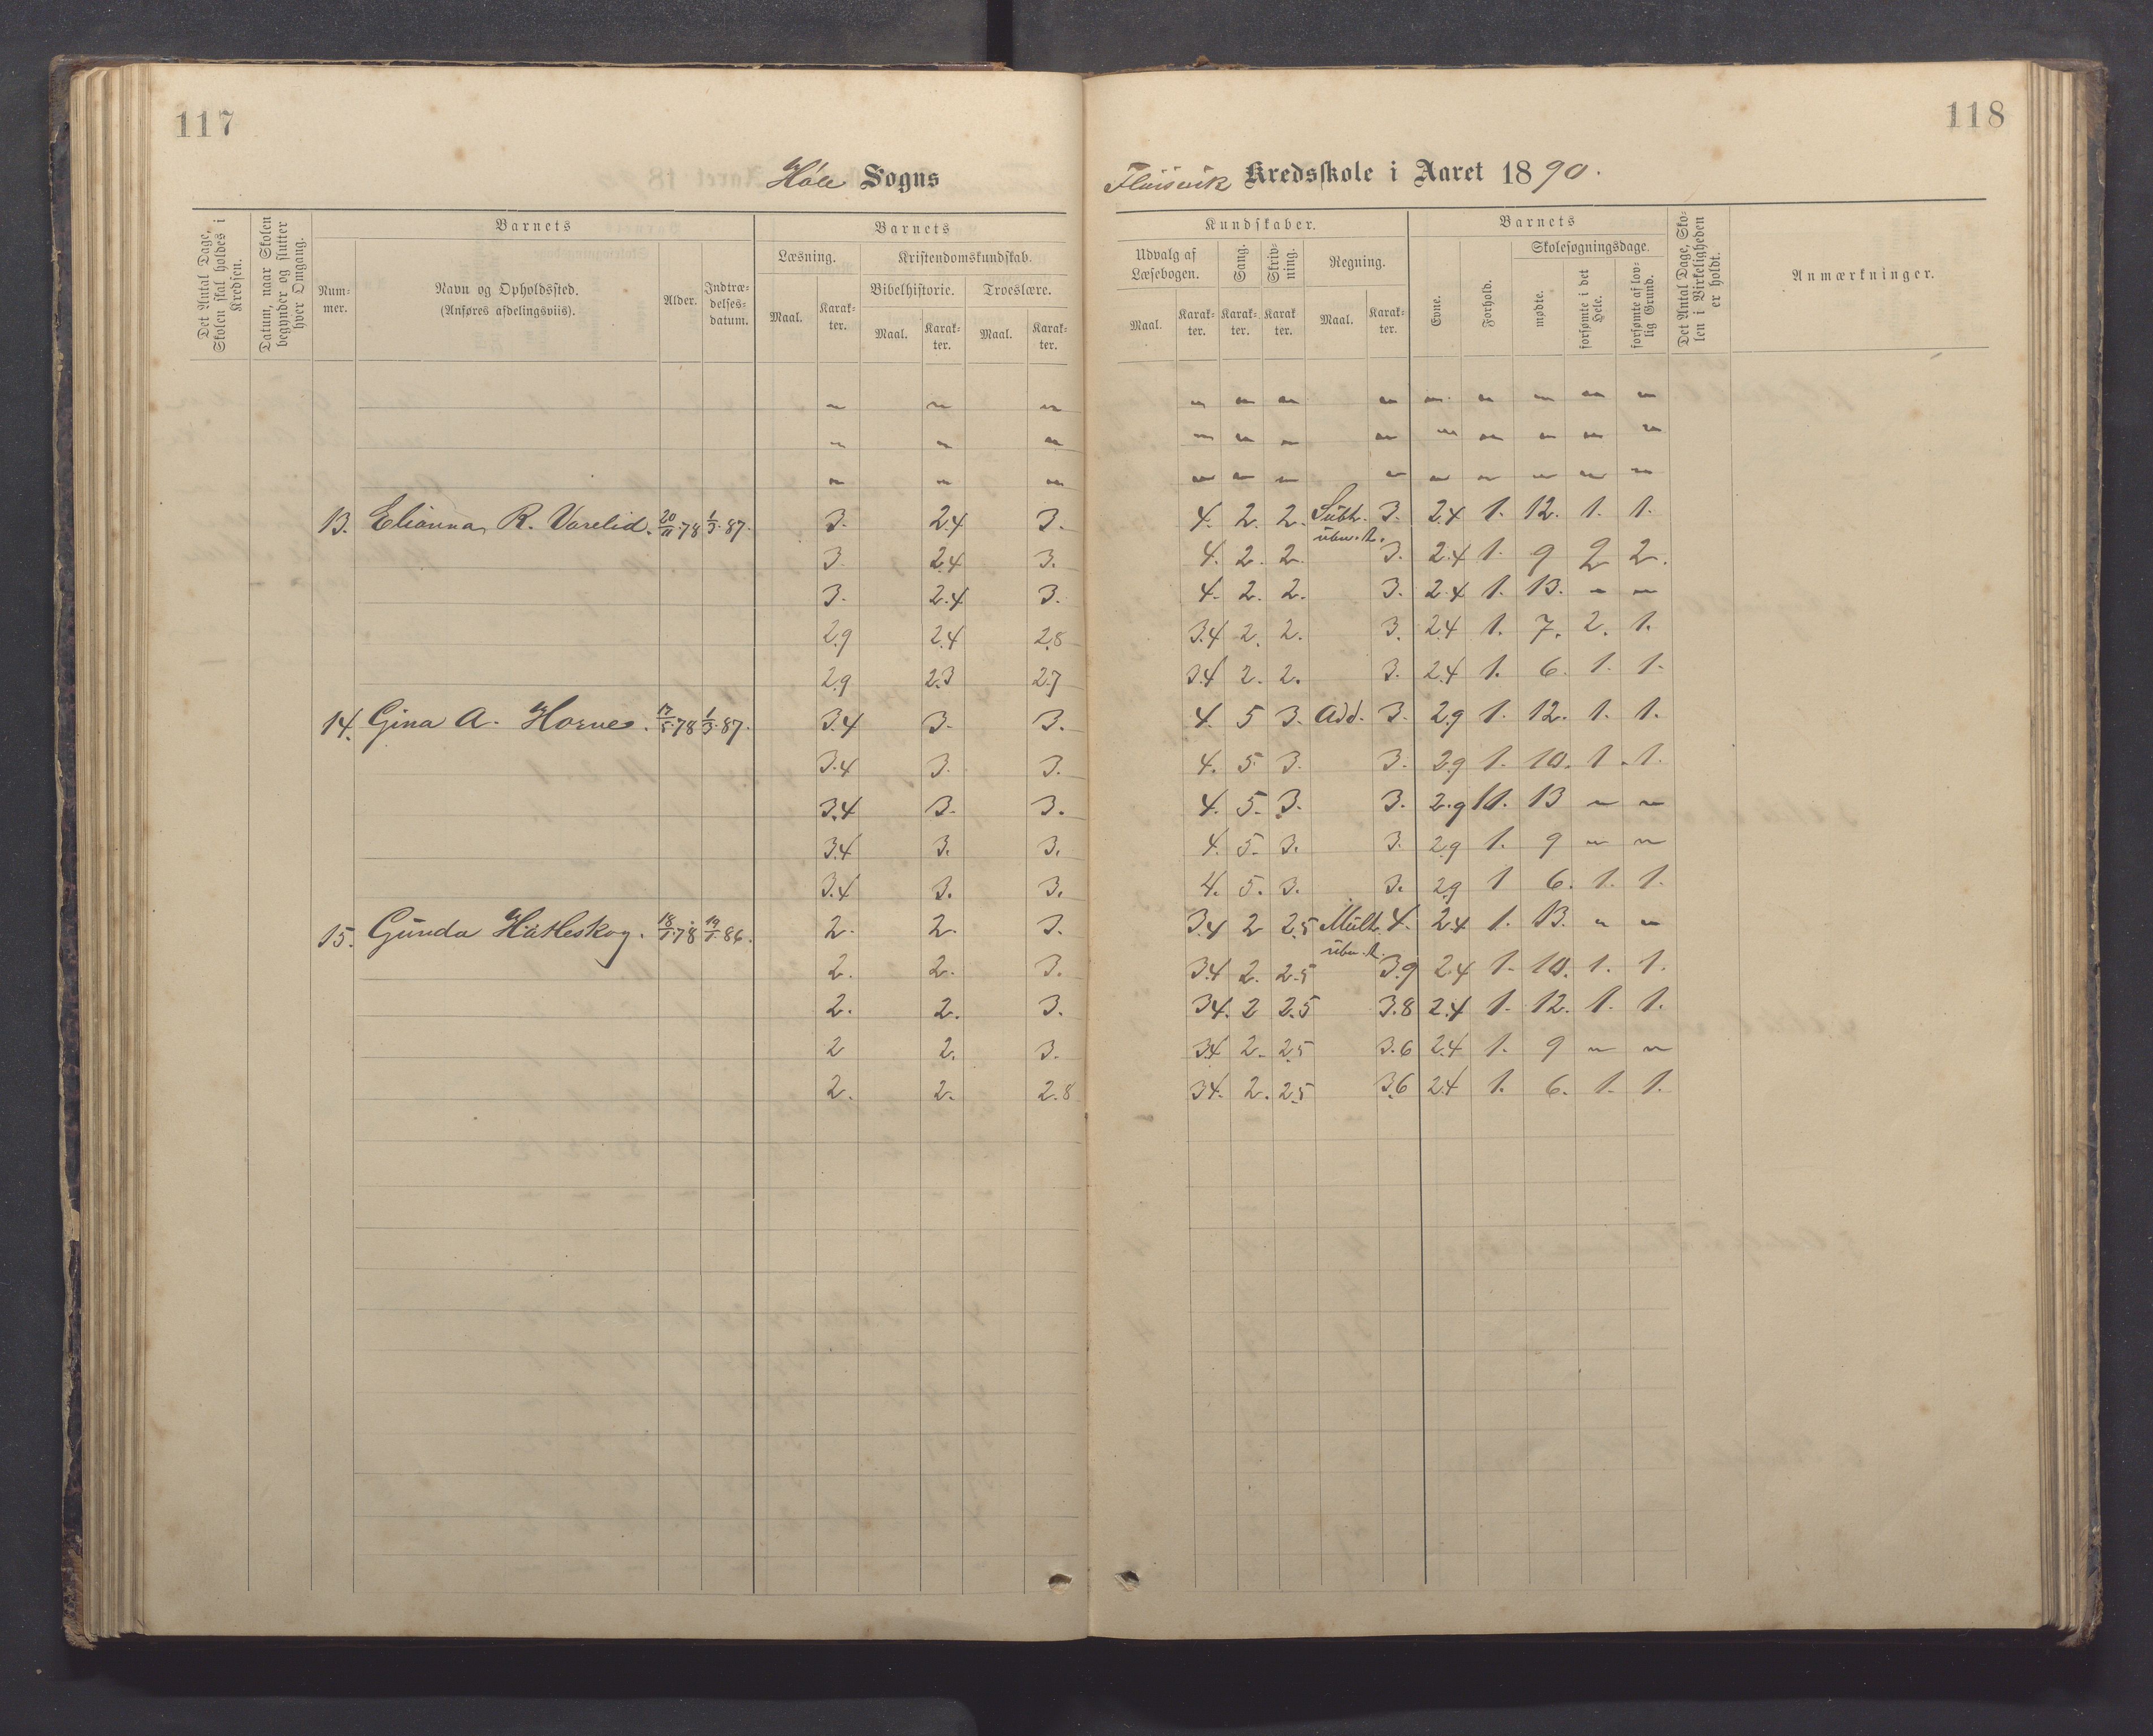 117
118
Høle Sogns
Kredsskole i Aaret 1890.
Det Antal Dage, Skolen skal holdes i Kredsen.
Datum, naar Skolen begynder og slutter hver Omgang.
Barnets
Num-
mer.
Navn og Opholdssted.
(Anføres afdelingsviis).
Alder.
Indtræ-
delses-
datum.
Barnets
Læsning.
Maal.
Karak-
ter.
Kristendomskundskab.
Bibelhistorie.
Maal.
Karak-
ter.
Troeslære.
Maal.
Karak-
ter.
Kundskaber.
Udvalg af
Læsebogen.
Maal.
Karak-
ter.
Sang.
Karak-
ter.
Skriv-
ning.
Karak
ter.
Regning.
Maal.
Karak-
ter.
Barnets
Evne.
Forhold.
Skolesøgningsdage.
mødte.
forsømte i det
Hele.
forsømte af lov-
lig Grund.
Det Antal Dage, Sko-
len i Virkeligheden
er holdt.
Anmærkninger.
" " " " " " " " " " " "
" " " " " " " " " " " "
" " " " " " " " " " " "
13. Elianna R. Varelid. 20/11.78 1/3.87. 3. 2.4 3. 4. 2. 2. Subt. 3. 2.4 1. 12. 1. 1.
3. 2.4 3. 4. 2. 2. uben. 3. 2.4 1. 9 2 2.
3. 2.4 3. 4. 2. 2. 3. 2.4 1. 13. " "
2.9 2.4 2.8 3.4 2. 2. 3. 2.4 1. 7. 2. 1.
2.9 2.3 2.7 3.4 2. 2. 3. 2.4 1. 6. 1. 1.
14. Gina A. Horve. 17/5.78 1/3.87. 3.4 3. 3. 4. 5 3. Add. 3. 2.9 1. 12. 1. 1.
3.4 3. 3. 4. 5 3. 3. 2.9 1. 10. 1. 1.
3.4 3. 3. 4. 5. 3. 3. 2.9 1. 13 " "
3.4 3. 3. 4. 5. 3. 3. 2.9 1. 9 " "
3.4 3. 3. 4. 5. 3. 3. 2.9 1 6. 1. 1.
15. Gunda Hatleskog. 18/1.78 19/1.86. 2. 2. 3. 3.4 2 2.5 Mult. 4. 2.4 1. 13. " "
2. 2. 3. 3.4 2. 2.5 uben. 3.9 2.4 1. 10. 1. 1.
2. 2. 3. 3.4. 2 2.5 3.8 2.4 1. 12. 1. 1.
2 2. 3. 3.4 2. 2.5 3.6 2.4 1. 9 " "
2. 2. 2.8 3.4. 2. 2.5 3.6 2.4 1. 6. 1. 1.